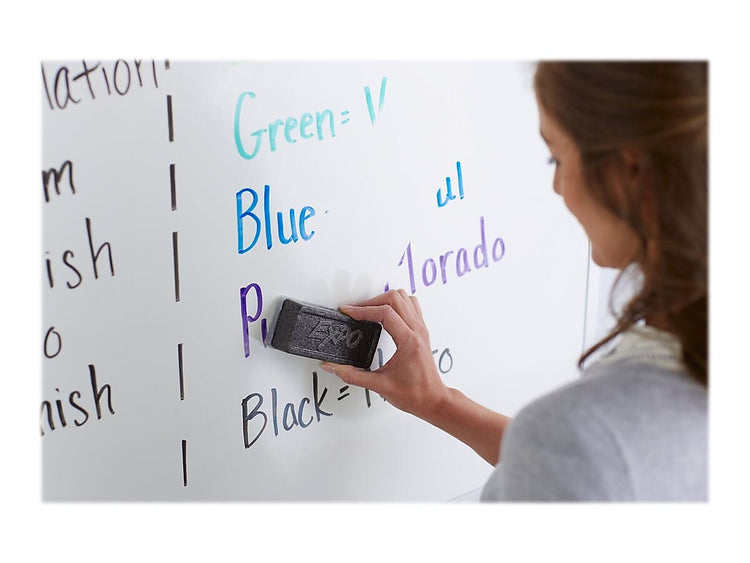 lation
m
ish
o
nish
Green = V
Blue ul
P morado
EXPO
Black =